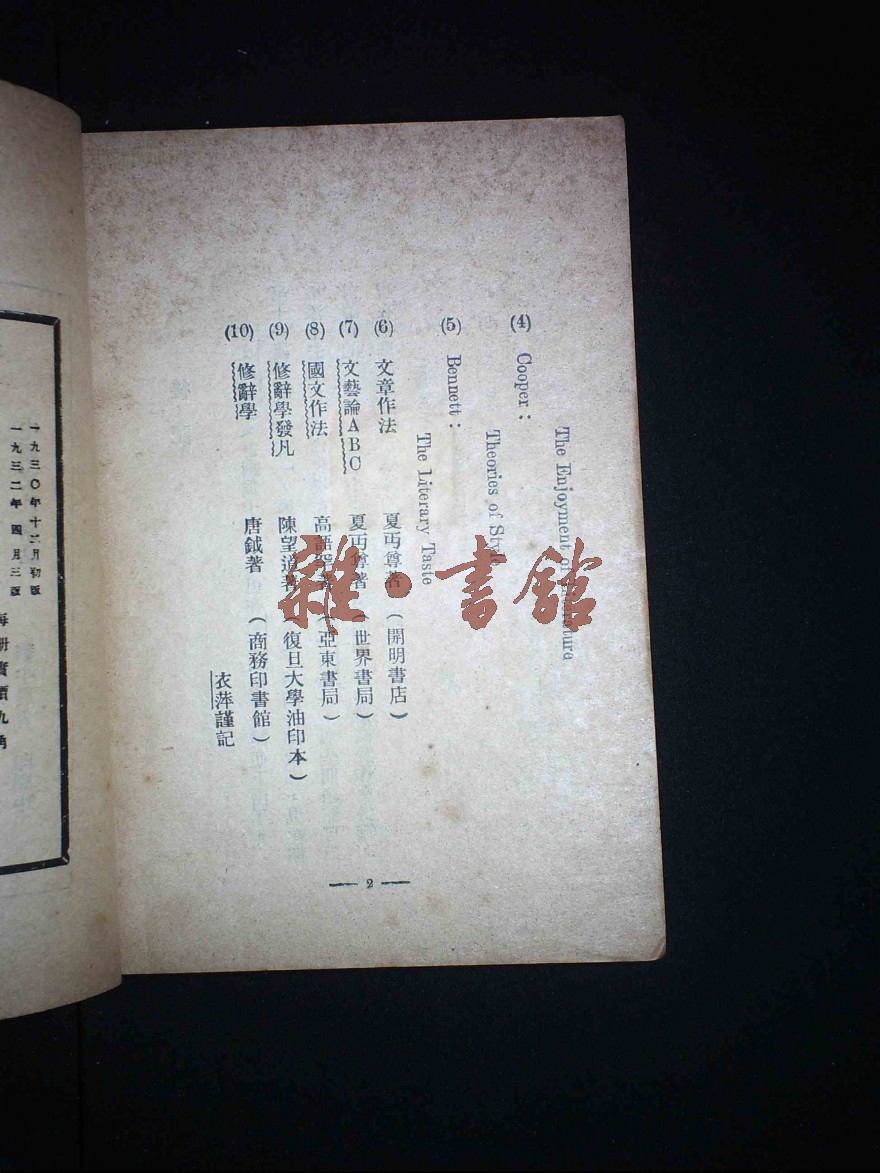 The Enjoyment of Literature
(4) Cooper:
Theories of Style
(5) Bennett:
The Literary Taste
(6) 文章作法 夏丏尊著 (開明書店)
(7) 文藝論ABC 夏丏尊著 (世界書局)
(8) 國文作法 高語罕著 (亞東書局)
(9) 修辭學發凡 陳望道著 (復旦大學油印本)
(10) 修辭學 唐鉞著 (商務印書館)
衣萍謹記
— 2 —
雜·書館
一九三〇年十二月初版
一九三二年四月三版
每册實價九角